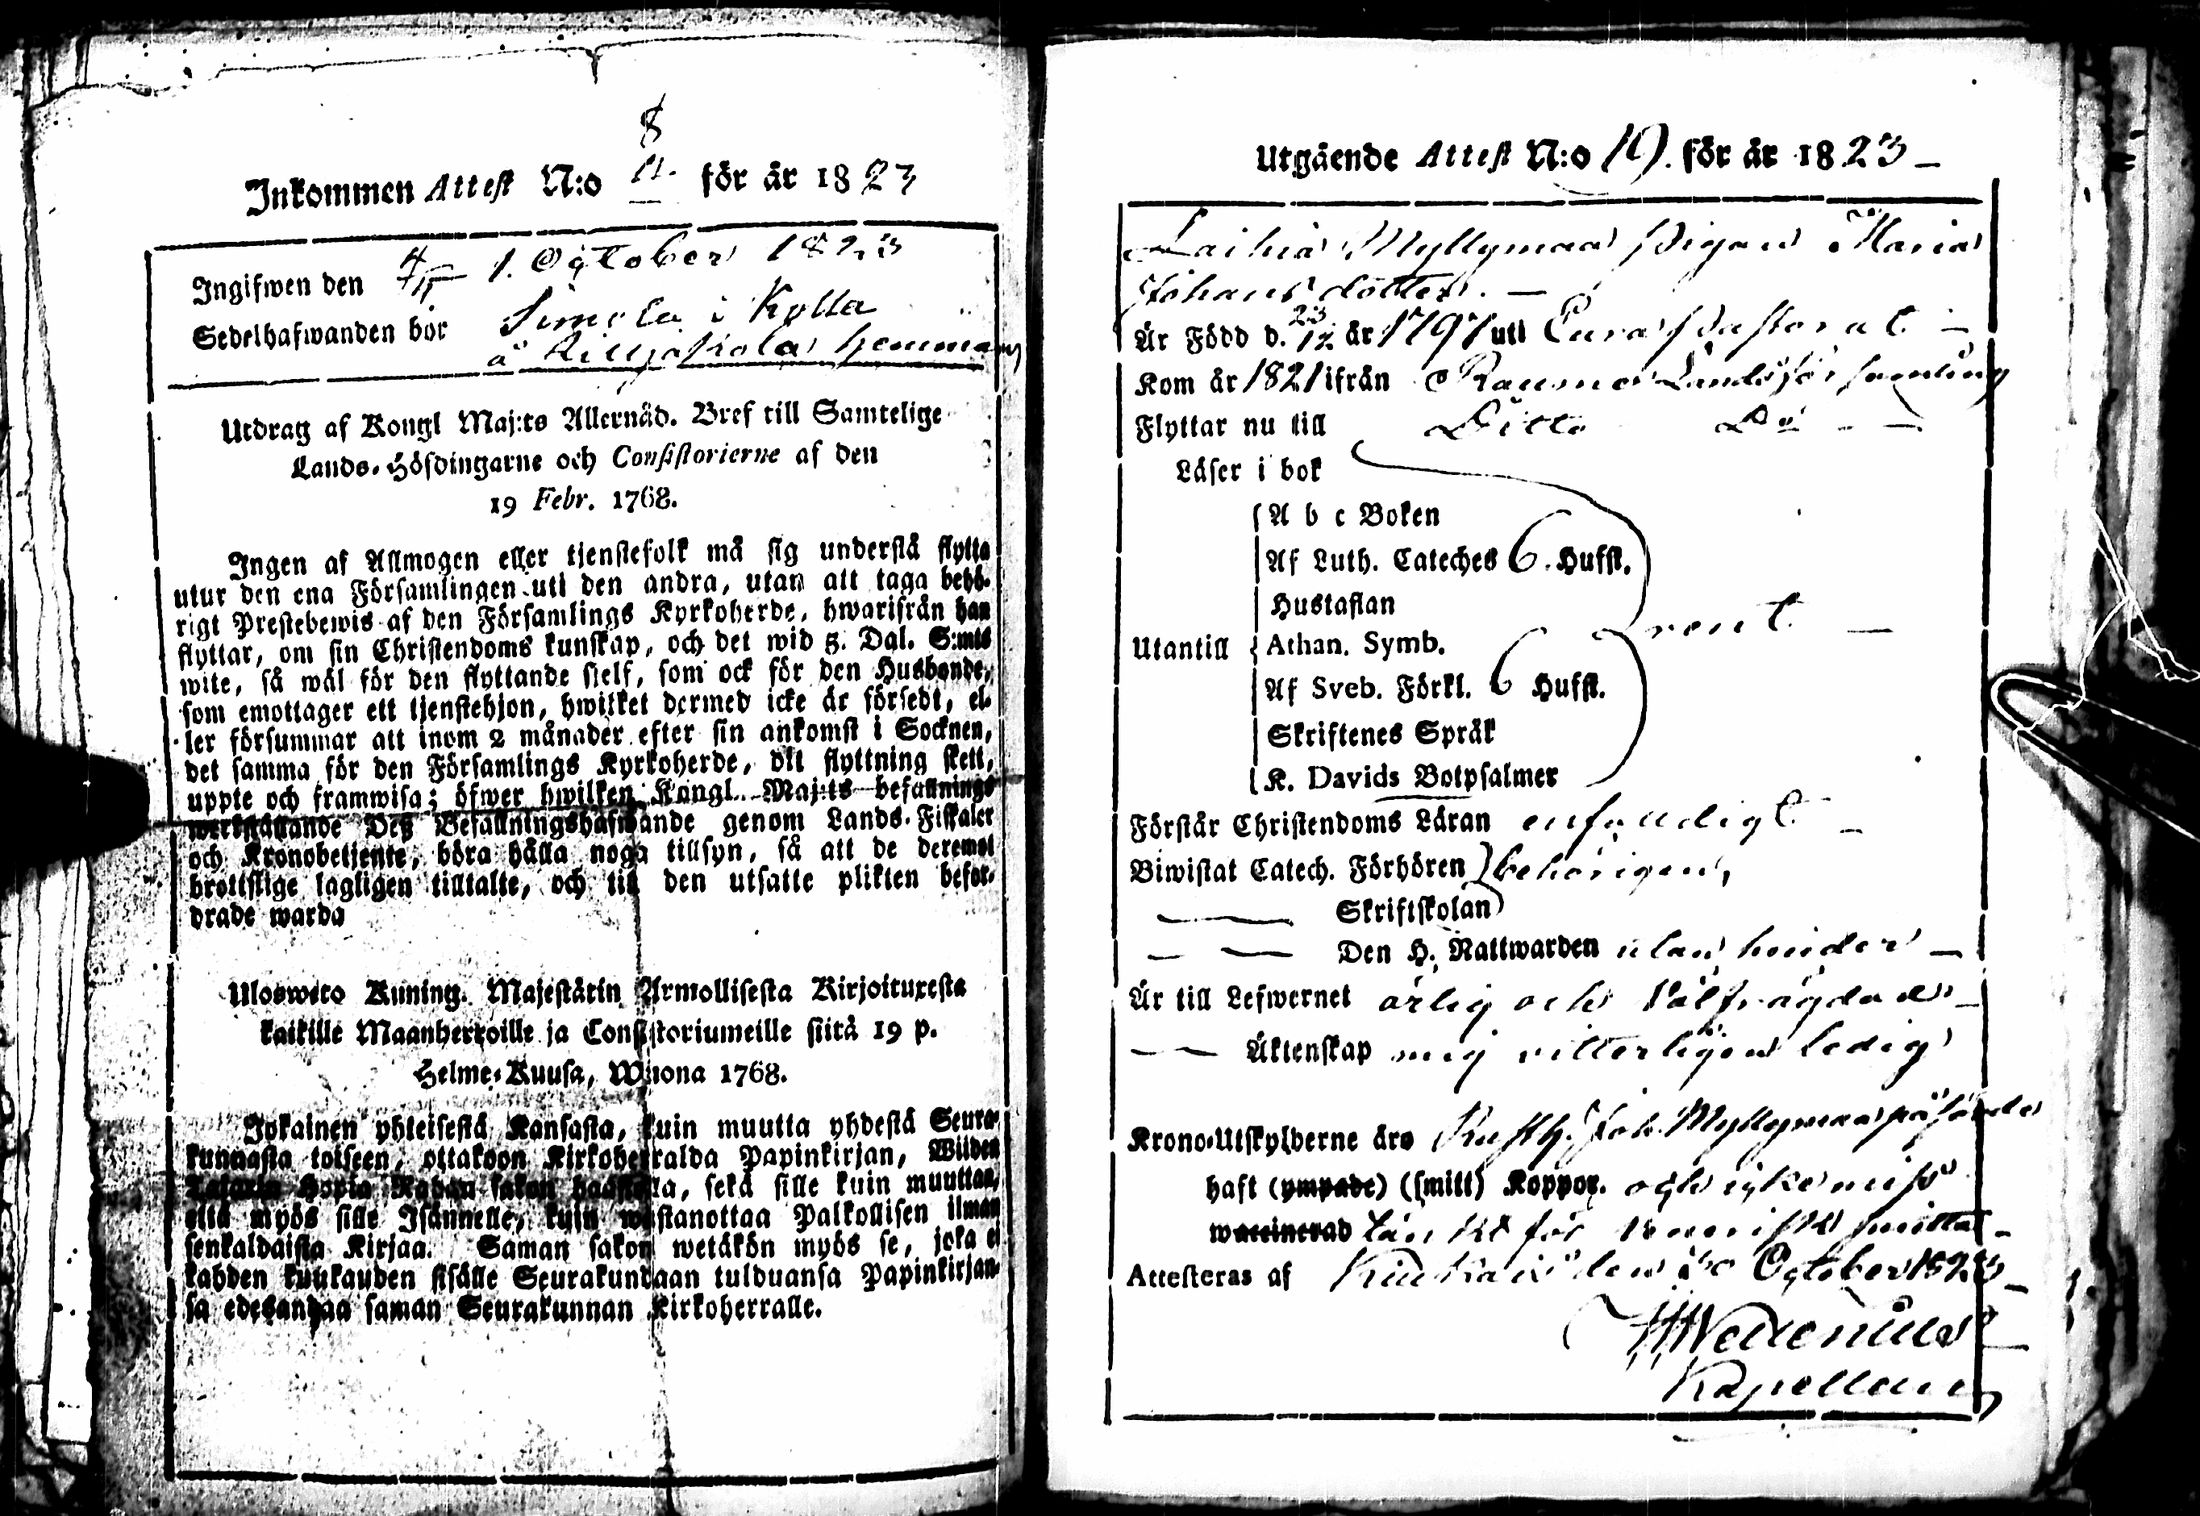 8
Inkommen Attest N:o 11. för år 1823
Ingifwen den 4/11 1. October 1823
Sedelhafwanden bor Simola i Kylla
å hemman
Utdrag af Kongl Maj:ts Allernåd. Bref till Samtelige
Lands-Höfdingarne och Consistorierne af den
19 Febr. 1768.
Ingen af Allmogen eller tjenstefolk må sig understå flytta
utur den ena Församlingen uti den andra, utan att taga behö-
rigt Prestebewis af den Församlings Kyrkoherde, hwarifrån han
flyttar, om sin Christendoms kunskap, och det wid 5. Dal. S:mts
wite, så wäl för den flyttande sielf, som ock för den Husbonde,
som emottager ett tjenstehjon, hwilket dermed icke är försedt, el-
ler försummar att inom 2 månader efter sin ankomst i Socknen,
det samma för den Församlings Kyrkoherde, dit flyttning skett,
uppte och framwisa; öfwer hwilken Kongl. Maj:ts befallnings
werkställande Deß Befallningshafwande genom Lands-Fiskaler
och Kronobetjente, böra hålla noga tillsyn, så att de deremot
brottslige lagligen tilltalte, och till den utsatte plikten befor-
drade warda
Uloswето Kuning. Majestätin Armollisesta Kirjoituxesta
kaikille Maanherroille ja Consistoriumeille siitä 19 p.
Helme-Kuusa, Wuona 1768.
Jokainen yhteisestä Kansasta, kuin muutta yhdestä Seura-
kunnasta toiseen, ottakoon Kirkoherralda Papinkirjan, Wiiden
Talarin Hopia Rahan sakon haastolla, sekä sille kuin muuttaa,
että myös sille Isännelle, kuin wastanottaa Palkollisen ilman
senkaldaista Kirjaa. Saman sakon wetäkön myös se, joka ei
kahden kuukauden sisälle Seurakundaan tulduansa Papinkirjan-
sa edesandaa saman Seurakunnan Kirkoherralle.
Utgående Attest N:o 19. för år 1823 –
Laihia Myllymaa Pigan Maria
Johansdotter. –
Är Född d. 23/12 år 1797 uti Eura Pastorat –
Kom år 1821 ifrån Raumo Landsförsamling
Flyttar nu till Ditto Do – –
Läser i bok
A b c Boken
Af Luth. Cateches 6. Hufst.
Hustaflan
rent –
Utantill Athan. Symb.
Af Sveb. Förkl. 6 Hufst.
Skriftenes Språk
K. Davids Botpsalmer
Förstår Christendoms Läran enfaldigt –
Biwistat Catech. Förhören behörigen,
— Skriftskolan
— — Den H. Nattwarden utan hinder –
Är till Lefwernet ärlig och välfrägdad –
— Äktenskap mig vitterligen ledig
Krono-Utskylderne äro Rusth. Joh. Myllymaa påförde
haft (ympade) (smitt) Koppor. och icke miss
waccinerad tänkt för venerisk smitta –
Attesteras af Kiukais den 30 October 1823 –
Wedenius
Kapellan